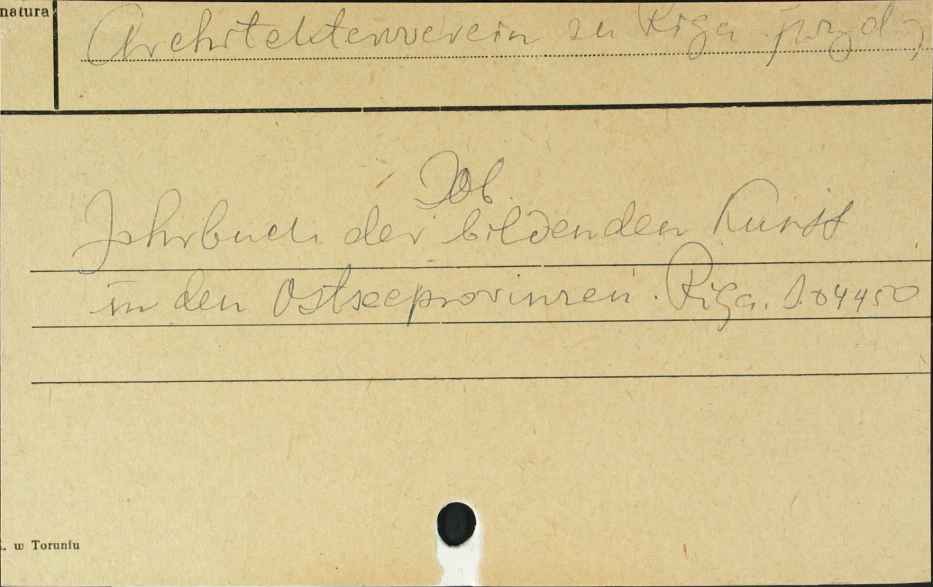 natura
Architektenverein zu Riga
Zob.
Jahrbuch der bildenden Kunst
in den Ostseeprovinzen. Riga. S.04450
w Toruniu